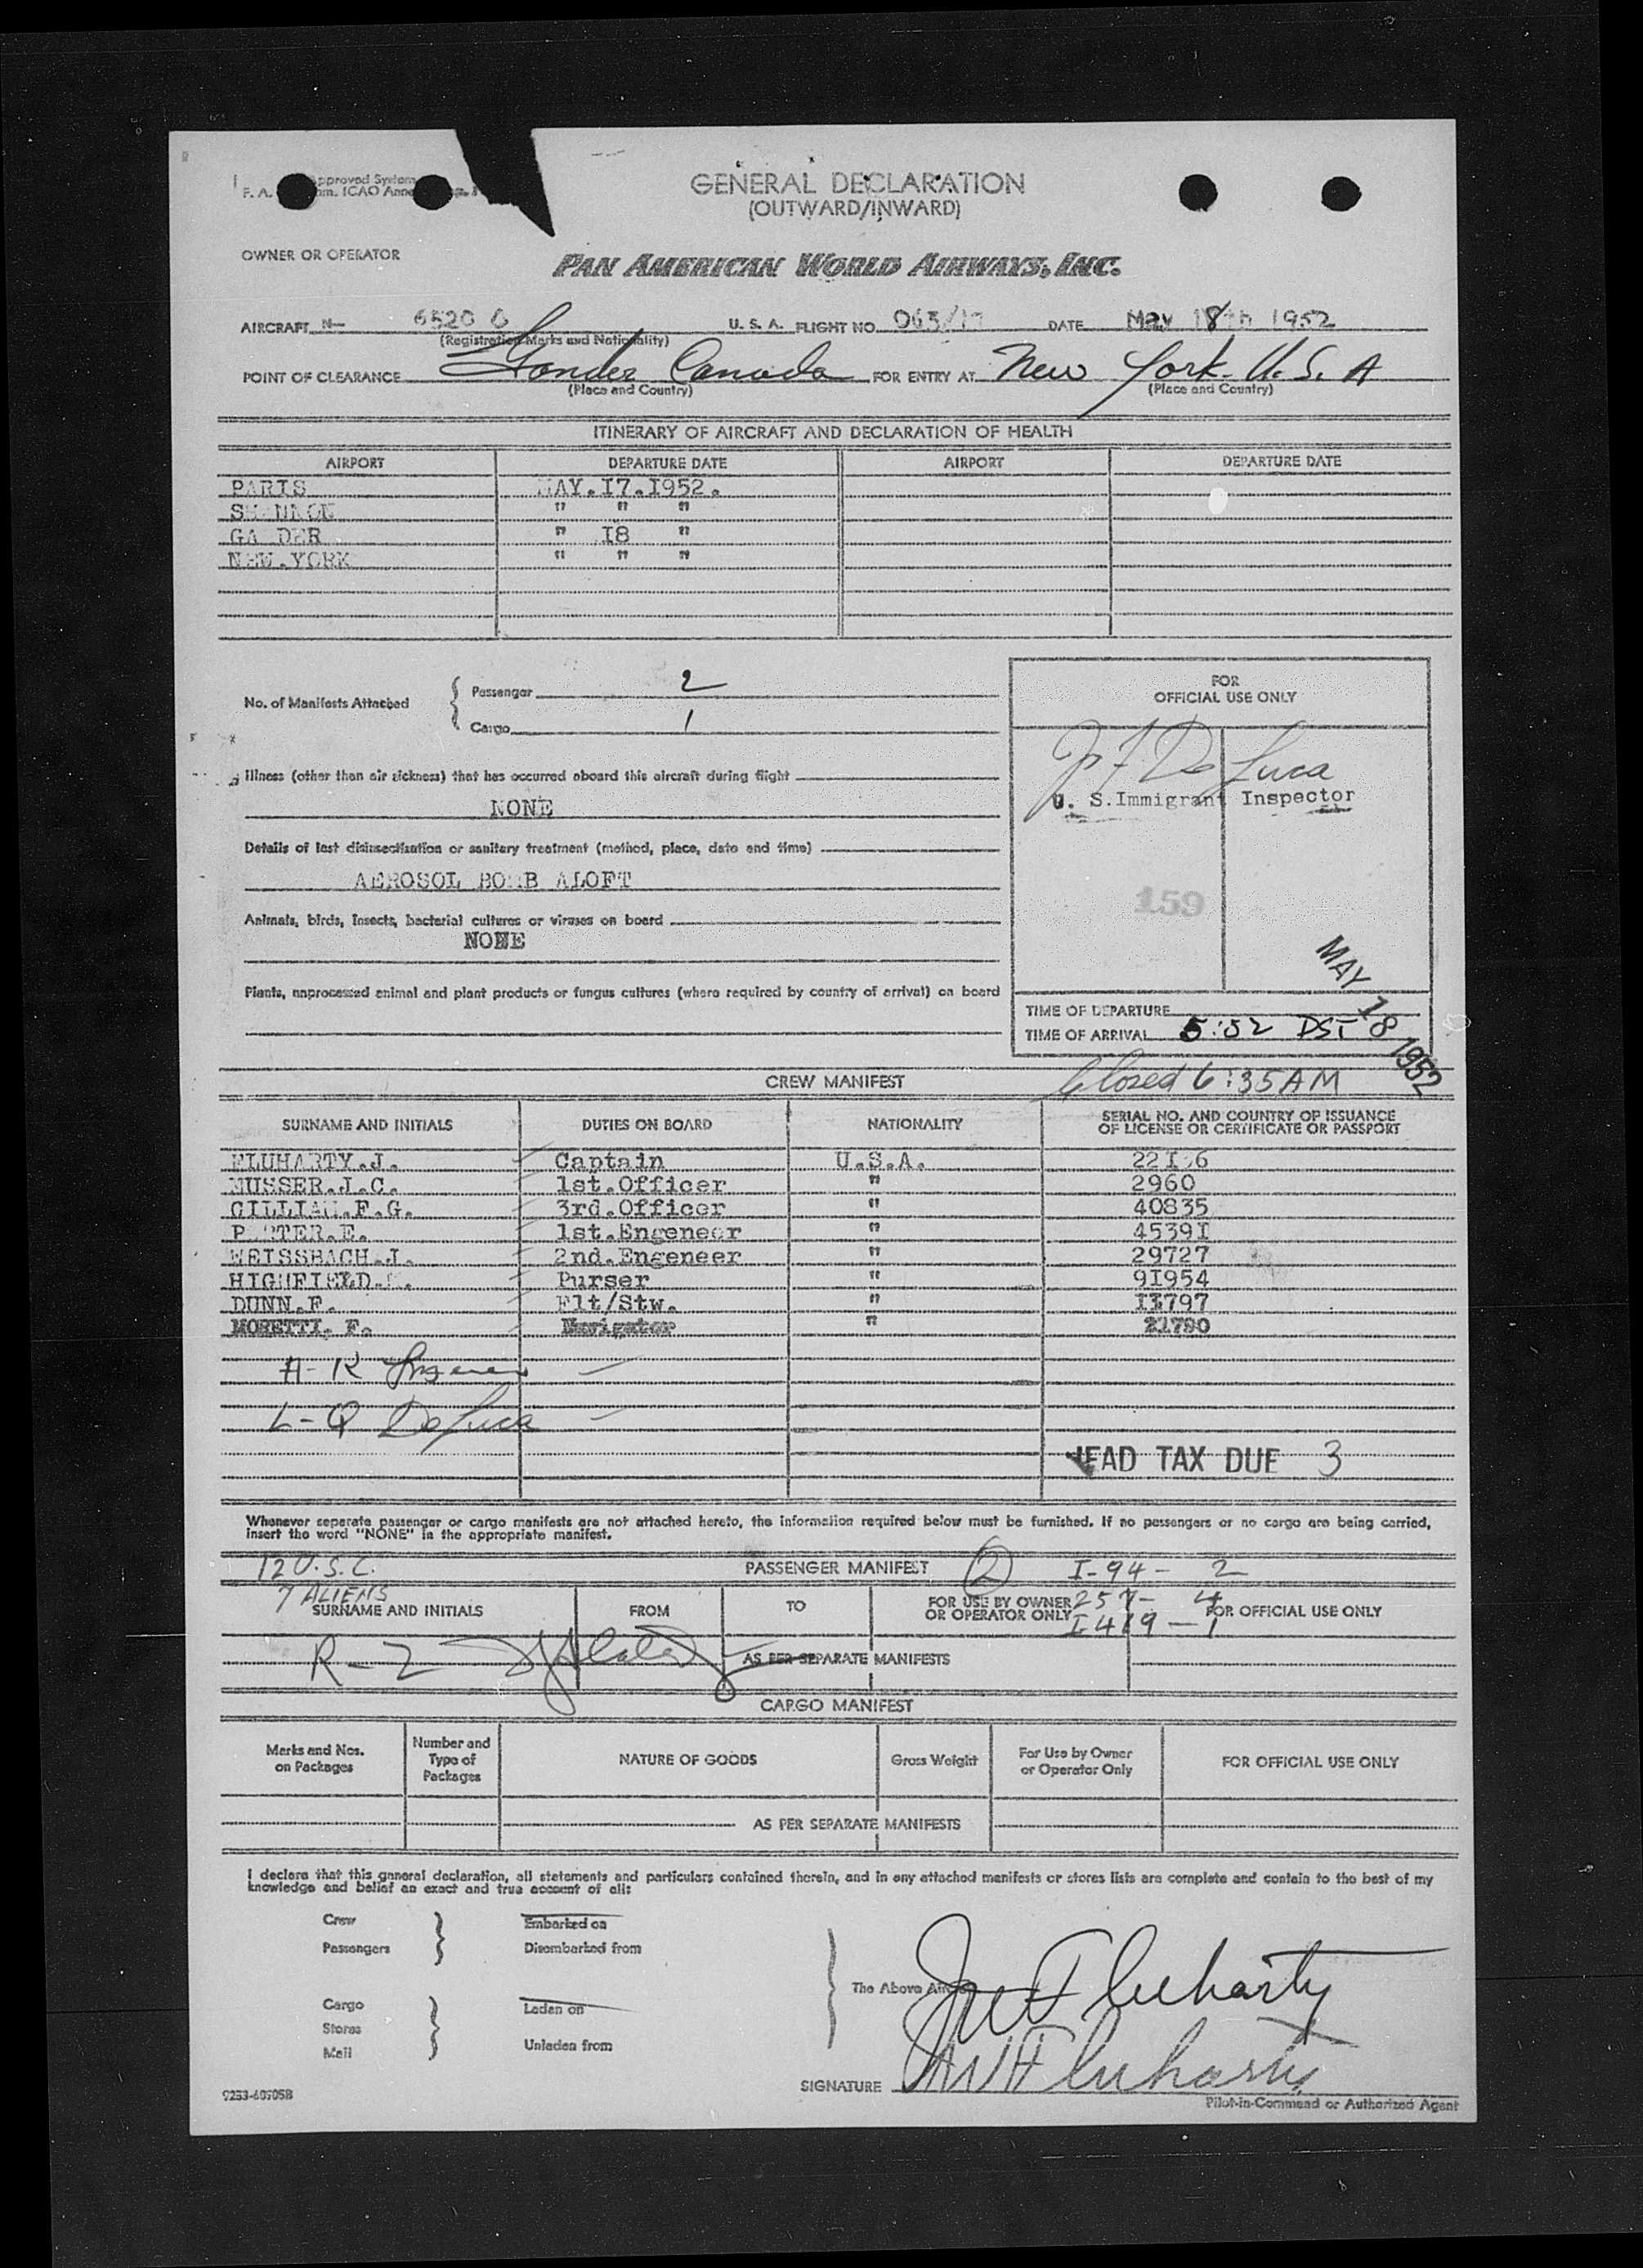 GENERAL DECLARATION
(OUTWARD/INWARD)
pproved System
F. A. m. ICAO Anne
OWNER OR OPERATOR PAN AMERICAN WORLD AIRWAYS, INC.
AIRCRAFT N— 6520 U. S. A. FLIGHT NO. 063/17 DATE May 18th 1952
(Registration Marks and Nationality)
POINT OF CLEARANCE Gander Canada FOR ENTRY AT New York U.S.A
(Place and Country) (Place and Country)
ITINERARY OF AIRCRAFT AND DECLARATION OF HEALTH
AIRPORT DEPARTURE DATE AIRPORT DEPARTURE DATE
PARIS MAY.I7.I952.
SHANNON " " "
GANDER " I8 "
NEW.YORK " " "
No. of Manifests Attached { Passenger 2
Cargo 1
FOR
OFFICIAL USE ONLY
De Luca
U. S.Immigrant Inspector
159
MAY 18 1952
TIME OF DEPARTURE
TIME OF ARRIVAL 5:52 DST
Closed 6:35AM
Illness (other than air sickness) that has occurred aboard this aircraft during flight
NONE
Details of last disinsectization or sanitary treatment (method, place, date and time)
AEROSOL BOMB ALOFT
Animals, birds, insects, bacterial cultures or viruses on board
NONE
Plants, unprocessed animal and plant products or fungus cultures (where required by country of arrival) on board
CREW MANIFEST
SURNAME AND INITIALS DUTIES ON BOARD NATIONALITY SERIAL NO. AND COUNTRY OF ISSUANCE
OF LICENSE OR CERTIFICATE OR PASSPORT
FLUHARTY.J. Captain U.S.A.
MUSSER.J.C. 1st.Officer " 2960
GILLIAM.F.G. 3rd.Officer " 40835
1st.Engeneer " 4539I
WEISSBACH.J. 2nd.Engeneer " 29727
HIGHFIELD. Purser " 9I954
DUNN.F. Flt/Stw. " 797
MORETTI. F. Navigator " 21790
A-K
L-Q DeLuca
HEAD TAX DUE 3
Whenever separate passenger or cargo manifests are not attached hereto, the information required below must be furnished. If no passengers or no cargo are being carried,
insert the word "NONE" in the appropriate manifest.
12 U.S.C. PASSENGER MANIFEST 2 I-94- 2
7 ALIENS 257- 4
SURNAME AND INITIALS FROM TO FOR USE BY OWNER
OR OPERATOR ONLY FOR OFFICIAL USE ONLY
I-419-1
R-Z AS PER SEPARATE MANIFESTS
CARGO MANIFEST
Marks and Nos.
on Packages
Number and
Type of
Packages
NATURE OF GOODS Gross Weight For Use by Owner
or Operator Only
FOR OFFICIAL USE ONLY
AS PER SEPARATE MANIFESTS
I declare that this general declaration, all statements and particulars contained therein, and in any attached manifests or stores lists are complete and contain to the best of my
knowledge and belief an exact and true account of all:
Crew Embarked on
Passengers Disembarked from
The Above
Cargo Laden on
Stores
Mail Unladen from
Fluharty
SIGNATURE Fluharty
Pilot-in-Command or Authorized Agent